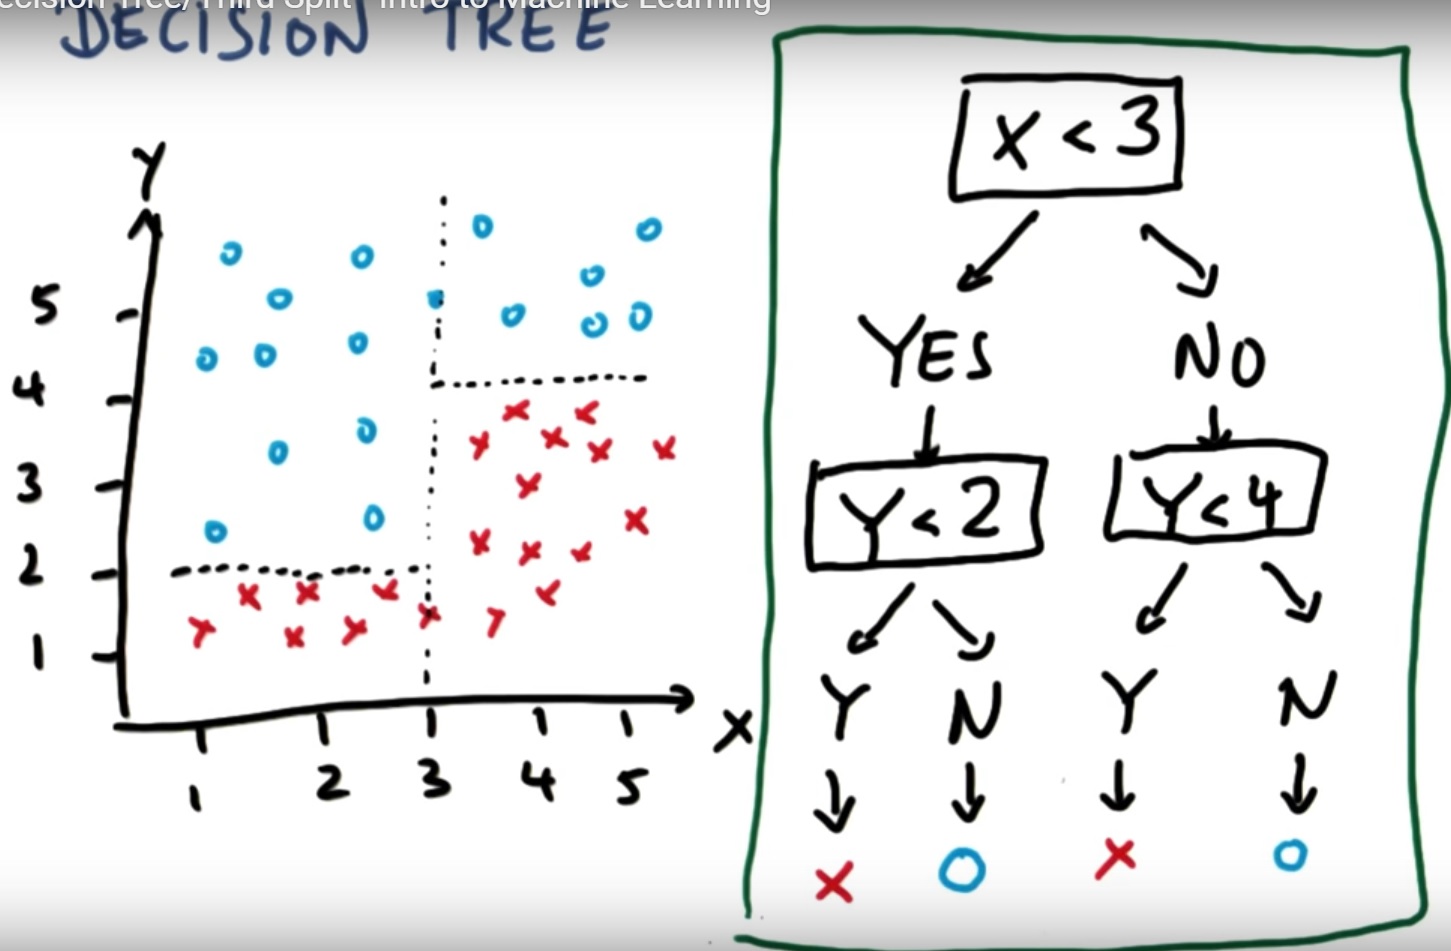 ecision Tree/Third Split - Intro to Machine Learning
DECISION TREE
Y
5
4
3
2
1
1 2 3 4 5
X
X < 3
YES NO
Y < 2 Y < 4
Y N Y N